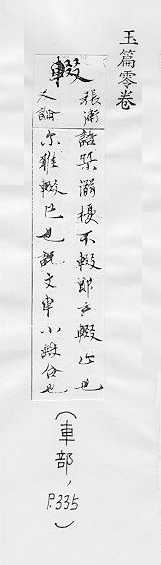 玉篇零卷
輟
張衛
反論
語桀溺櫌不輟鄭玄輟止也
尓雅輟已也說文車小缺合也
（車部，P.335）